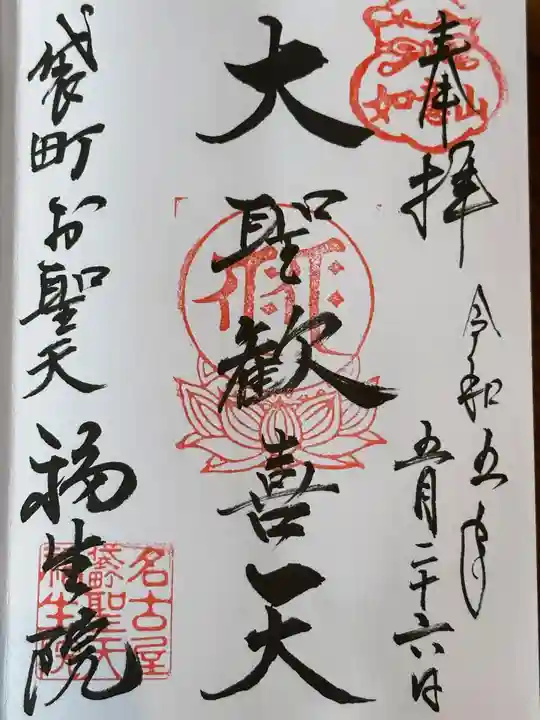 奉拝
如意山
令和五年
五月二十六日
大聖歓喜天
袋町お聖天
福生院
名古屋
袋町聖天
福生院